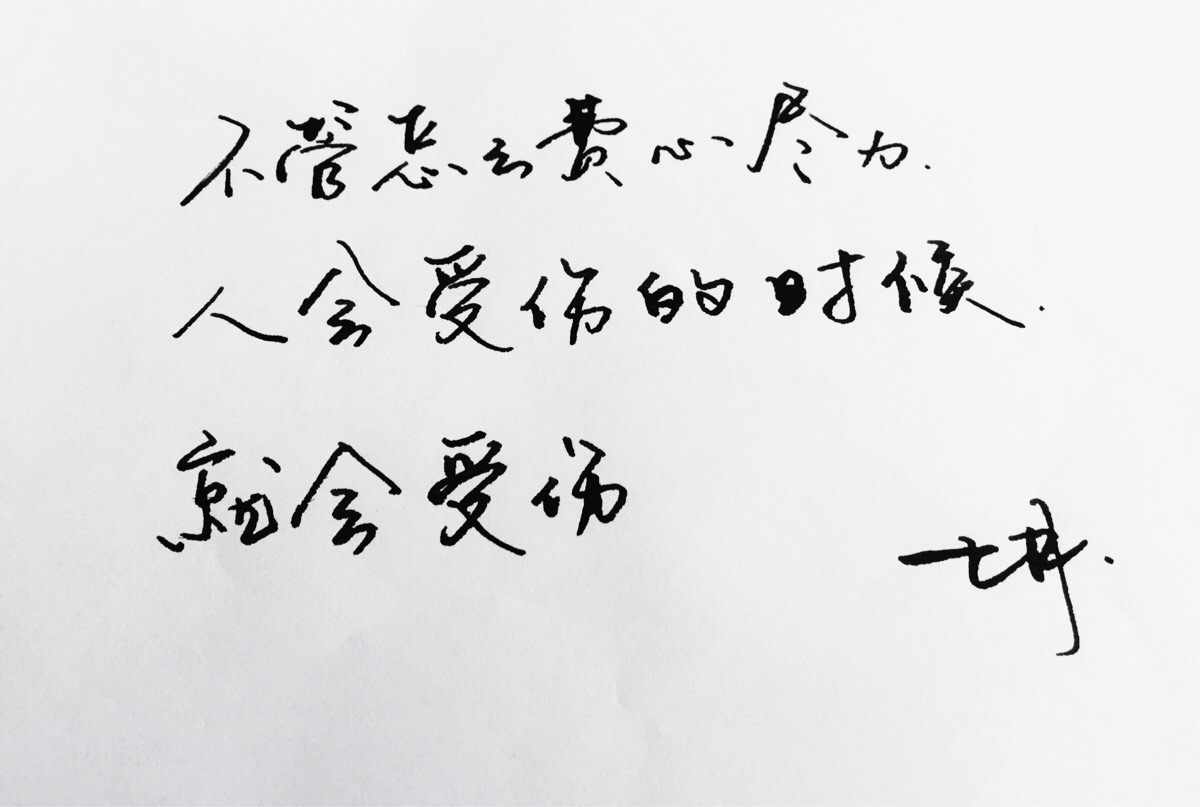 不管怎么费心尽力.
人会受伤的时候.
就会受伤